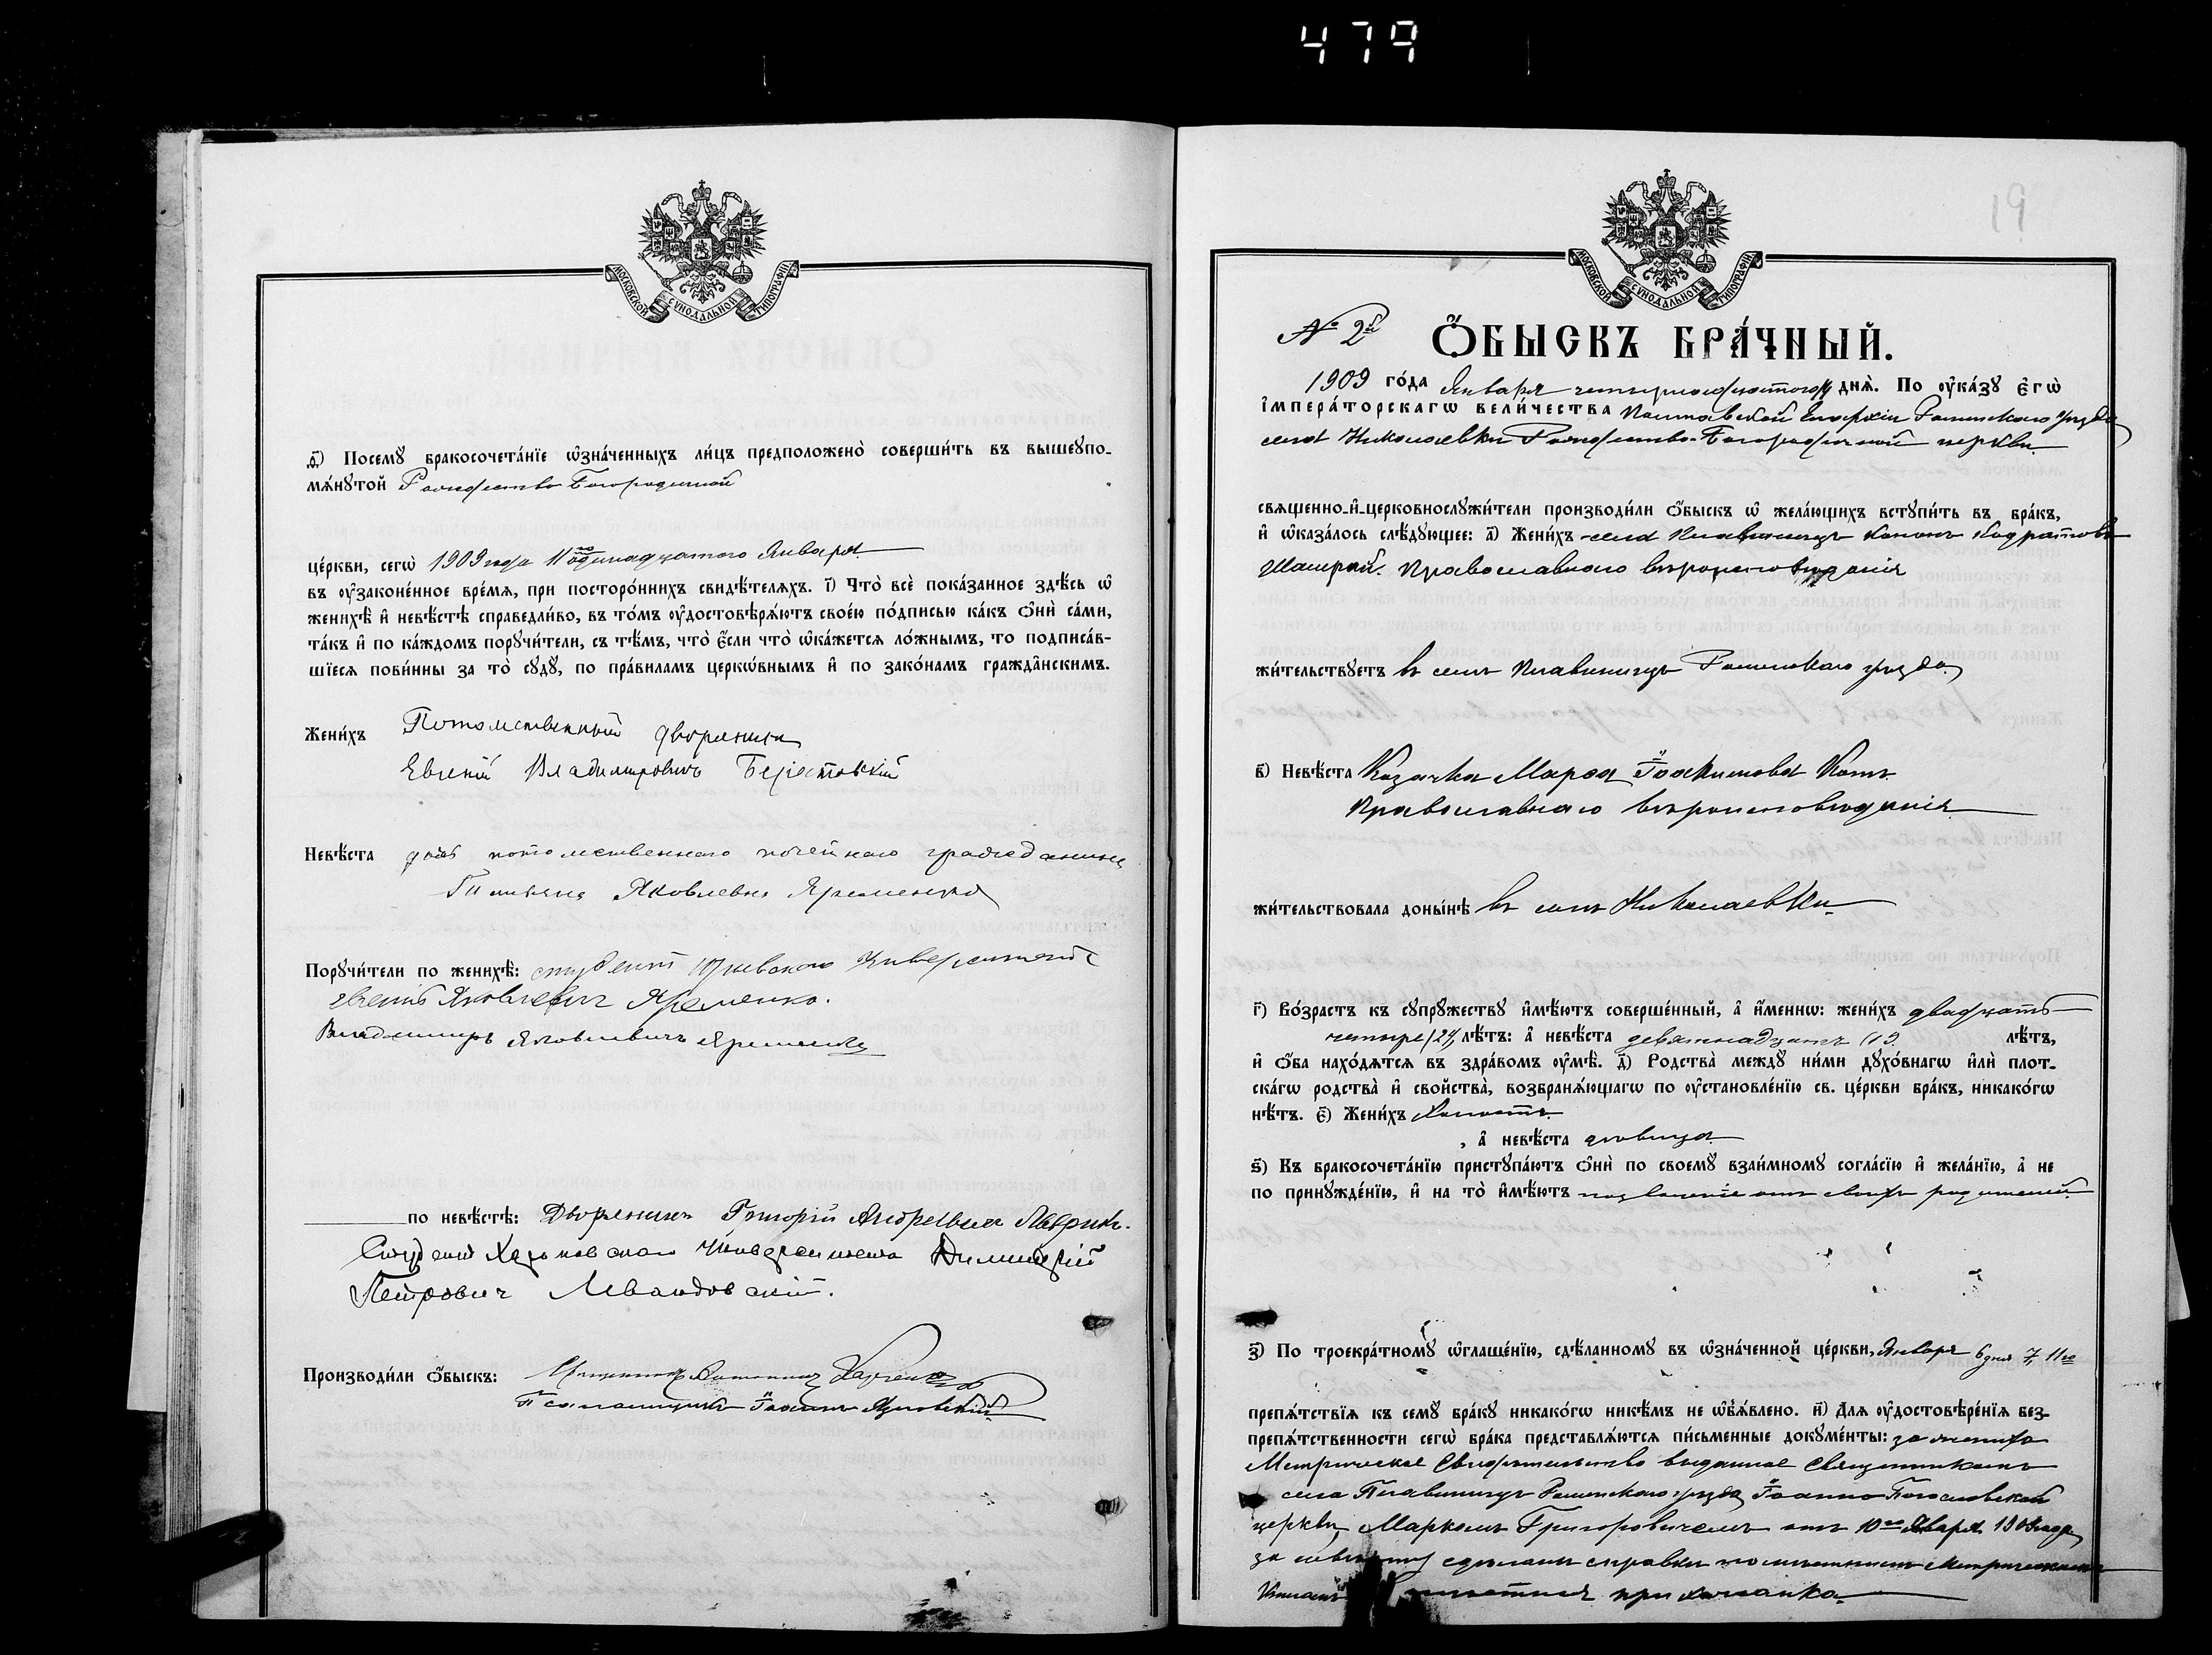 479
МОСКОВСКОЙ СѴНОДАЛЬНОЙ ТИПОГРАФІИ
ѳ҃) Посемꙋ̀ бракосочета́нїе ѡ҆зна́ченныхъ ли́цъ предположено̀ соверши́ть въ вышеꙋпо-
мѧ́нꙋтой Рождество Богородичной
це́ркви, сегѡ̀ 1909 года 11го одинадцатого Января
въ ᲂу҆зако́ненное вре́мѧ, при посторо́ннихъ свидѣ́телѧхъ. і҃) Что̀ всѐ пока́занное здѣ́сь ѡ҆
женихѣ̀ и҆ невѣ́стѣ справедли́во, въ то́мъ ᲂу҆достовѣрѧ́ютъ свое́ю по́дписью ка́къ ѻ҆нѝ са́ми,
та́къ и҆ по ка́ждомъ порꙋчи́тели, съ тѣ́мъ, что̀ є҆́сли что̀ ѡ҆ка́жетсѧ ло́жнымъ, то подписа́в-
шїесѧ пови́нны за то̀ сꙋдꙋ̀, по пра́виламъ церкѡ́внымъ и҆ по зако́намъ гражда̑нскимъ.
Жени́хъ Потомственный дворянинъ
Евгеній Владимировичъ Берестовскій
Невѣ́ста дочь потомственнаго почетнаго гражданина
Татьяна Яковлевна Яременко
Порꙋчи́тели по женихѣ̀: студентъ Юрьевского Университета
Евгеній Яковлевичъ Яременко.
Владимиръ Яковлевичъ Яременко
по невѣ́стѣ: Дворянинъ Григорій Андреевичъ Лаврикъ.
Студентъ Харьковского Университета Димитрій
Петровичъ Левандовскій.
Производи́ли ѻ҆́быскъ: Священникъ Харченко
Псаломщикъ Іоаннъ
19
МОСКОВСКОЙ СѴНОДАЛЬНОЙ ТИПОГРАФІИ
№ 2й Ѻ҆́БЫСКЪ БРА́ЧНЫЙ.
1909 го́да Января четырнадцатого 14 днѧ̀. По ᲂу҆ка́зꙋ є҆гѡ̀
і҆мпера́торскагѡ вели́чества Полтавской Епархіи Роменского уѣзда
села Николаевки Рождество-Богородичной церкви
свѧщенно-и҆-церковнослꙋжи́тели производи́ли ѻ҆́быскъ ѡ҆ жела́ющихъ встꙋпи́ть въ бра́къ,
и҆ ѡ҆каза́лось слѣ́дꙋющее: а҃) Жени́хъ села Плавинищъ Кононъ Кодратовъ
Православнаго вѣроисповѣданія
жи́тельствꙋетъ въ селѣ Плавинищѣ Роменского уѣзда
в҃) Невѣ́ста Козачка Марѳа Іоакимова Котъ
Православнаго вѣроисповѣданія
жи́тельствовала доны́нѣ въ селѣ Николаевки
г҃) Во́зрастъ къ сꙋпрꙋ́жествꙋ и҆мѣ́ютъ соверше́нный, а҆̀ и҆́меннѡ: жени́хъ двадцать
четыре (24) лѣ́тъ: а҆̀ невѣ́ста девятнадцать (19. лѣ́тъ,
и҆ ѻ҆́ба нахо́дѧтсѧ въ здра́вомъ ᲂу҆мѣ̀. д҃) Родства̀ междꙋ̀ ни́ми дꙋхо́внагѡ и҆лѝ плот-
ска́гѡ родства̀ и҆ сво́йства̀, возбранѧ́ющагѡ по ᲂу҆становле́нїю св. це́ркви бра́къ, никако́гѡ
нѣ́тъ. є҃) Жени́хъ холостъ
, а҆̀ невѣ́ста дѣвица
ѕ҃) Къ бракосочета́нїю пристꙋпа́ютъ ѻ҆нѝ по своемꙋ̀ взаи́мномꙋ согла́сїю и҆ жела́нїю, а҆̀ не
по принꙋжде́нїю, и҆ на то̀ и҆мѣ́ютъ позволеніе отъ своихъ родителей
з҃) По троекра́тномꙋ ѡ҆глаше́нїю, сдѣ́ланномꙋ въ ѡ҆зна́ченной це́ркви, Января 6 дня 7, 11го
препѧ́тствїѧ къ семꙋ̀ бра́кꙋ никако́гѡ никѣ́мъ не ѡ҆б̾ѧ́влено. и҃) Длѧ ᲂу҆достовѣре́нїѧ без-
препѧ́тственности сегѡ̀ бра́ка представлѧ́ютсѧ пи́сьменные докꙋме́нты: за жениха
Метрическое Свидѣтельство выданное Священникомъ
села Плавинищъ Роменского уѣзда Іоанно Богословской
церкви Маркомъ Григоровичемъ отъ 10го Января 1909 года
за невѣсту сдѣлана справка по мѣстнымъ Метрическимъ
Книгамъ прихожанка